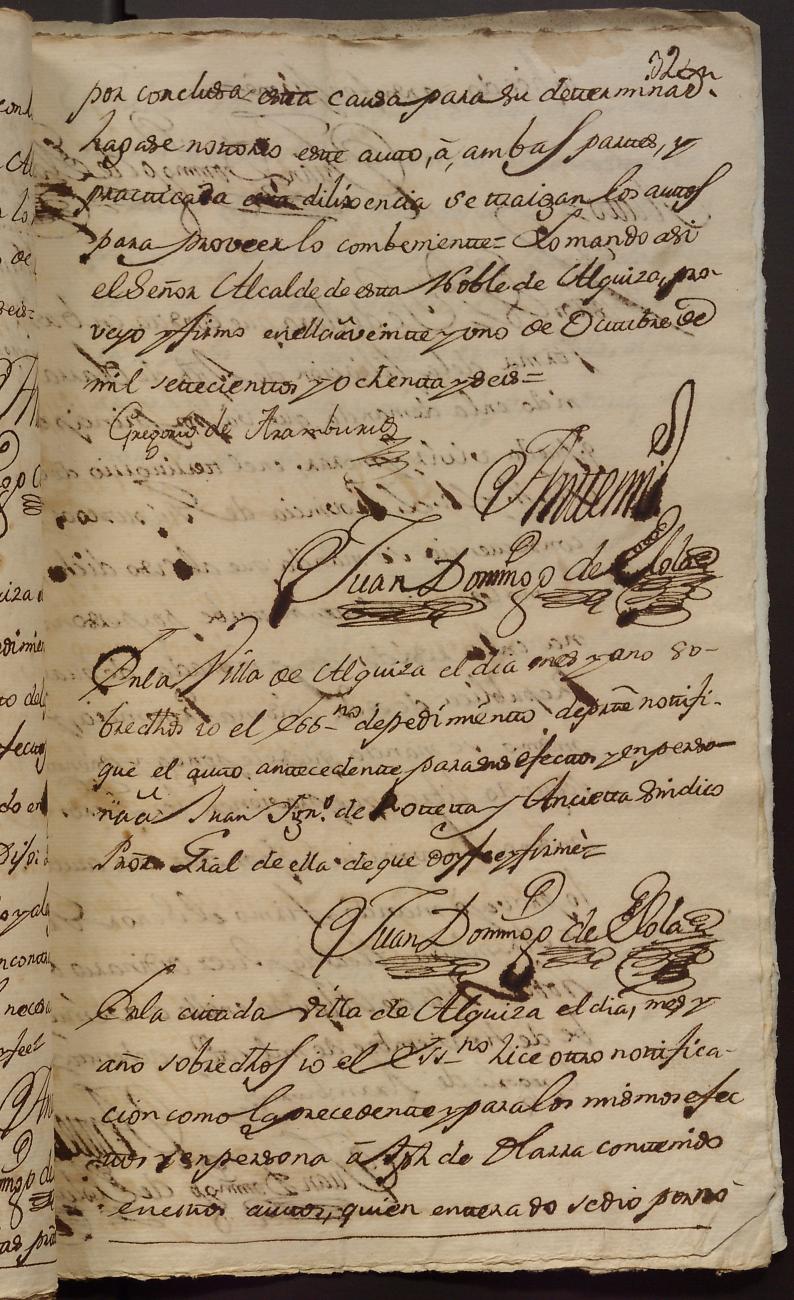 32
por conclusa esta causa para su determinaon.
hagase nottorio este auto, â, ambas partes, y
practicada esta dilixencia se traigan los autos
para proveer lo combeniente= Lo mando asi
el Señor Alcalde de esta Noble de Alquiza, pro-
veyo y firmo en ella â veinte y uno de Octubre de
mil settecienttos y ochenta y seis=
Gregorio de Aramburu
Anttemi
Juan Domingo de Elola
En la Villa de Alquiza el dia mes y año so-
bredhos io el Ess.no de pedimiento de parte notifi-
que el auto antecedente para sus efectos y en perso-
na â Juan Ign.o de Rotteta y Ancietta Sindico
Pror. Gral de ella de que doy fee y firmè=
Juan Domingo de Elola
En la citada villa de Alquiza el dia, mes y
año sobredhos io el Ess.no hice otro notifica-
ción como la precedente y para los mismos efec
tos y en persona â Jph de Olarra contenido
en estos autos, quien enterado se dio por no